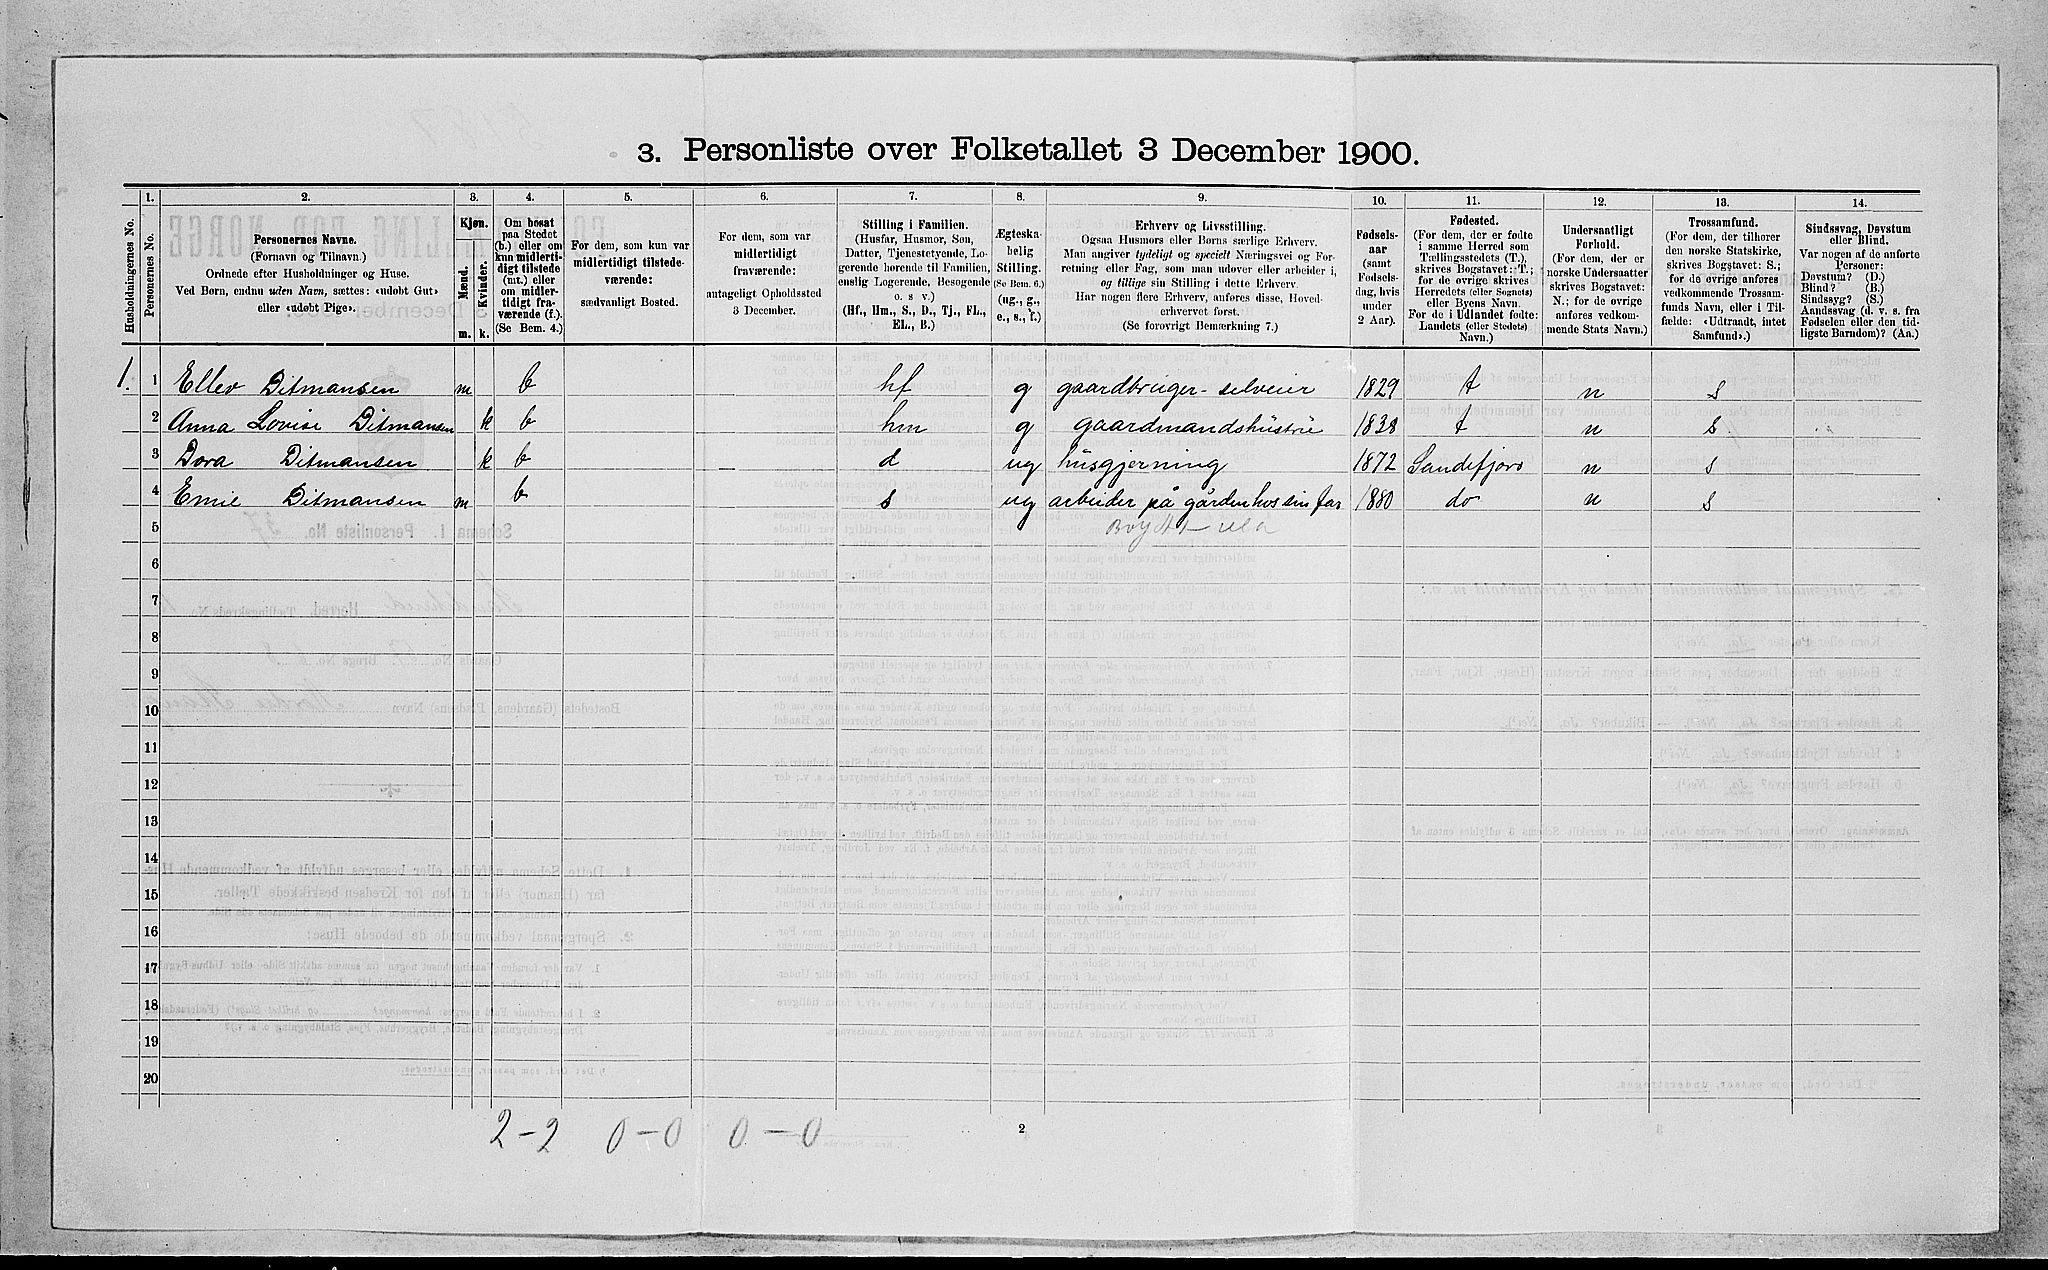 3. Personliste over Folketallet 3 December 1900.
1. 2. 3. 4. 5. 6. 7. 8. 9. 10. 11. 12. 13. 14.
Husholdningernes No.
Personernes No.
Personernes Navne.
(Fornavn og Tilnavn.)
Ordnede efter Husholdninger og Huse.
Ved Børn, endnu uden Navn, sættes: «udøbt Gut»
eller «udøbt Pige».
Kjøn.
Mænd.
Kvinder.
m. k.
Om bosat
paa Stedet
(b.) eller om
kun midlerti-
digt tilstede
(mt.) eller
om midler-
tidigt fra-
værende (f.).
(Se Bem. 4.)
For dem, som kun var
midlertidigt tilstede-
værende:
sædvanligt Bosted.
For dem, som var
midlertidigt
fraværende:
antageligt Opholdssted
3 December.
Stilling i Familien.
(Husfar, Husmor, Søn,
Datter, Tjenestetyende, Lo-
gerende hørende til Familien,
enslig Logerende, Besøgende
o. s v.)
(Hf., Hm., S., D., Tj., FL.,
EL., B.)
Ægteska-
belig
Stilling.
(Se Bem. 6.)
(ug., g.,
e., s., f.)
Erhverv og Livsstilling.
Ogsaa Husmors eller Børns særlige Erhverv.
Man angiver tydeligt og specielt Næringsvei og For-
retning eller Fag, som man udøver eller arbeider i,
og tillige sin Stilling i dette Erhverv.
Har nogen flere Erhverv, anføres disse, Hoved-
erhvervet først.
(Se forøvrigt Bemærkning 7.)
Fødsels-
aar
(samt
Fødsels-
dag, hvis
under
2 Aar).
Fødested.
(For dem, der er fødte
i samme Herred som
Tællingsstedets (T.),
skrives Bogstavet: T.;
for de øvrige skrives
Herredets (eller Sognets)
eller Byens Navn.
For de i Udlandet fødte:
Landets (eller Stedets)
Navn.)
Undersaatligt
Forhold.
(For dem, der er
norske Undersaatter
skrives Bogstavet:
N.; for de øvrige
anføres vedkom-
mende Stats Navn.)
Trossamfund.
(For dem, der tilhører
den norske Statskirke,
skrives Bogstavet: S.;
for de øvrige anføres
vedkommende Trossam-
funds Navn, eller i Til-
fælde: «Udtraadt, intet
Samfund».)
Sindssvag, Døvstum
eller Blind.
Var nogen af de anførte
Personer:
Døvstum? (D.)
Blind? (B.)
Sindssyg? (S.)
Aandssvag (d. v. s. fra
Fødselen eller den tid-
ligste Barndom)? (Aa.)
1. 1 Ellev Ditmansen m b hf g gaardbruger - selveier 1829 t n s
2 Anna Lovise Ditmansen k b hm g gaardmandshustrue 1838 t n s
3 Dora Ditmansen k b d ug husgjerning 1872 Sandefjord n s
4 Emil Ditmansen m b s ug arbeider på gården hos sin far 1880 do n s
5
6
7
8
9
10
11
12
13
14
15
16
17
18
19
20
2-2 0-0 0-0
2